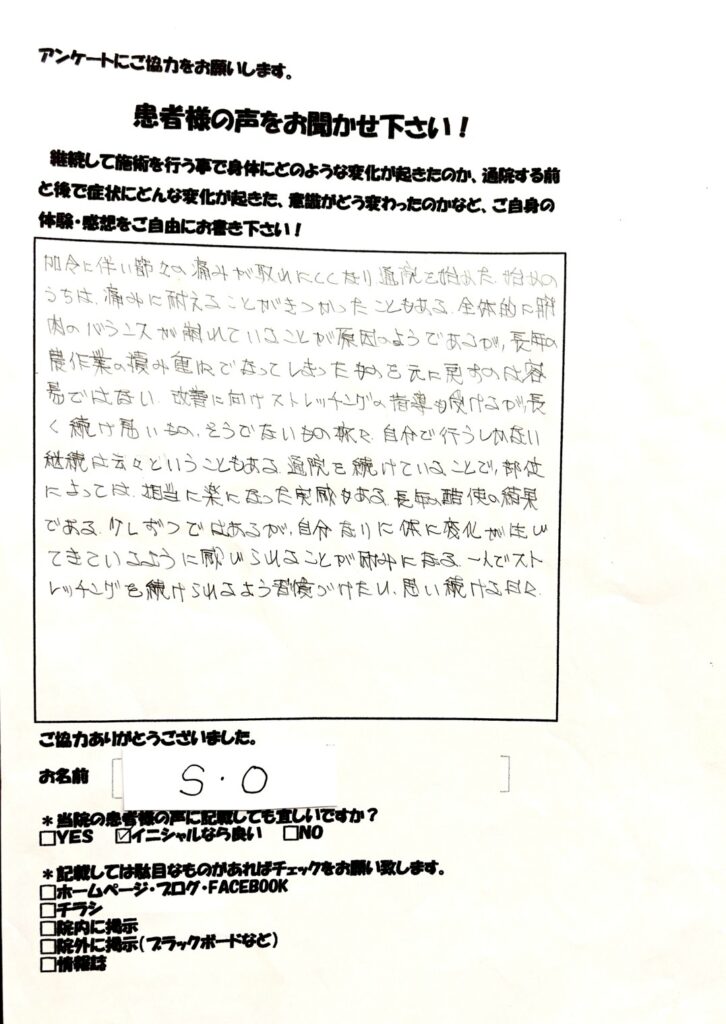 アンケートにご協力をお願いします。
患者様の声をお聞かせ下さい！
継続して施術を行う事で身体にどのような変化が起きたのか、通院する前
と後で症状にどんな変化が起きた、意識がどう変わったのかなど、ご自身の
体験・感想をご自由にお書き下さい！
加令に伴い節々の痛みが取れにくくなり通院を始めた。始めの
うちは、痛みに耐えることがきつかったこともある。全体的に筋
肉のバランスが崩れていることが原因のようであるが、長年の
農作業の積み重ねでなってしまったものを元に戻すのは容
易ではない。改善に向けストレッチングの指導も受けるが、長
く続け易いもの、そうでないもの 自分で行うしかない
継続は云々ということもある。通院を続けていることで、部位
によっては、相当に楽になった実感もある。長年の酷使の結果
である。少しずつではあるが、自分なりに体に変化が生じ
てきているように感じられることが励みになる。一人でスト
レッチングを続けられるよう習慣づけたい、思い続ける日々。
ご協力ありがとうございました。
お名前 S・O
＊当院の患者様の声に記載しても宜しいですか？
□YES ☑イニシャルなら良い □NO
＊記載しては駄目なものがあればチェックをお願い致します。
□ホームページ・ブログ・FACEBOOK
□チラシ
□院内に掲示
□院外に掲示（ブラックボードなど）
□情報誌